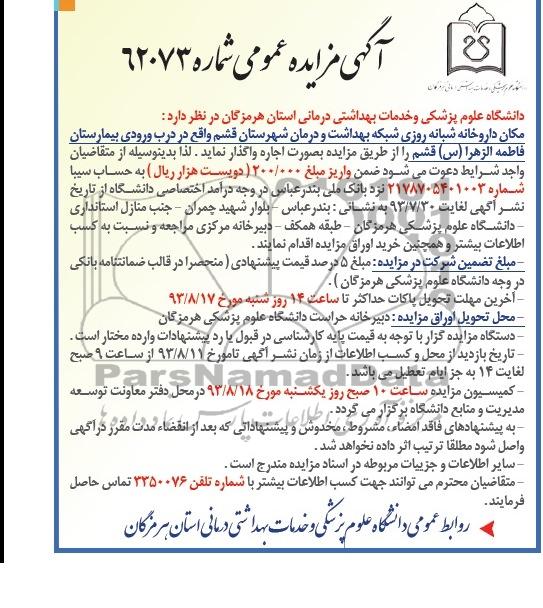 آگهی مزایده عمومی شماره ۶۲۰۷۳
دانشگاه علوم پزشکی وخدمات بهداشتی درمانی استان هرمزگان در نظر دارد :
مکان داروخانه شبانه روزی شبکه بهداشت و درمان شهرستان قشم واقع در درب ورودی بیمارستان
فاطمه الزهرا (س) قشم را از طریق مزایده بصورت اجاره واگذار نماید . لذا بدینوسیله از متقاضیان
واجد شرایط دعوت می شود ضمن واریز مبلغ ۲۰۰/۰۰۰ ( دویست هزار ریال ) به حساب سیبا
شماره ۲۱۷۸۷۰۵۴۰۱۰۰۳ نزد بانک ملی بندرعباس در وجه درآمد اختصاصی دانشگاه از تاریخ
نشر آگهی لغایت ۹۳/۷/۳۰ به نشانی : بندرعباس – بلوار شهید چمران – جنب منازل استانداری
– دانشگاه علوم پزشکی هرمزگان – طبقه همکف – دبیرخانه مرکزی مراجعه و نسبت به کسب
اطلاعات بیشتر و همچنین خرید اوراق مزایده اقدام نمایند .
– مبلغ تضمین شرکت در مزایده : مبلغ ۵ درصد قیمت پیشنهادی ( منحصرا در قالب ضمانتنامه بانکی
در وجه دانشگاه علوم پزشکی هرمزگان ) .
– آخرین مهلت تحویل پاکات حداکثر تا ساعت ۱۴ روز شنبه مورخ ۹۳/۸/۱۷
– محل تحویل اوراق مزایده : دبیرخانه حراست دانشگاه علوم پزشکی هرمزگان
– دستگاه مزایده گزار با توجه به قیمت پایه کارشناسی در قبول یا رد پیشنهادات وارده مختار است .
– تاریخ بازدید از محل و کسب اطلاعات از زمان نشر آگهی تامورخ ۹۳/۸/۱۱ از ساعت ۹ صبح
لغایت ۱۴ به جز ایام تعطیل می باشد .
– کمیسیون مزایده ساعت ۱۰ صبح روز یکشنبه مورخ ۹۳/۸/۱۸ درمحل دفتر معاونت توسعه
مدیریت و منابع دانشگاه برگزار می گردد .
– به پیشنهادهای فاقد امضاء ، مشروط ، مخدوش و پیشنهاداتی که بعد از انقضاء مدت مقرر درآگهی
واصل شود مطلقا ترتیب اثر داده نخواهد شد .
– سایر اطلاعات و جزییات مربوطه در اسناد مزایده مندرج است .
– متقاضیان محترم می توانند جهت کسب اطلاعات بیشتر با شماره تلفن ۳۳۵۰۰۷۶ تماس حاصل
فرمایند .
روابط عمومی دانشگاه علوم پزشکی و خدمات بهداشتی درمانی استان هرمزگان
ParsNamadData